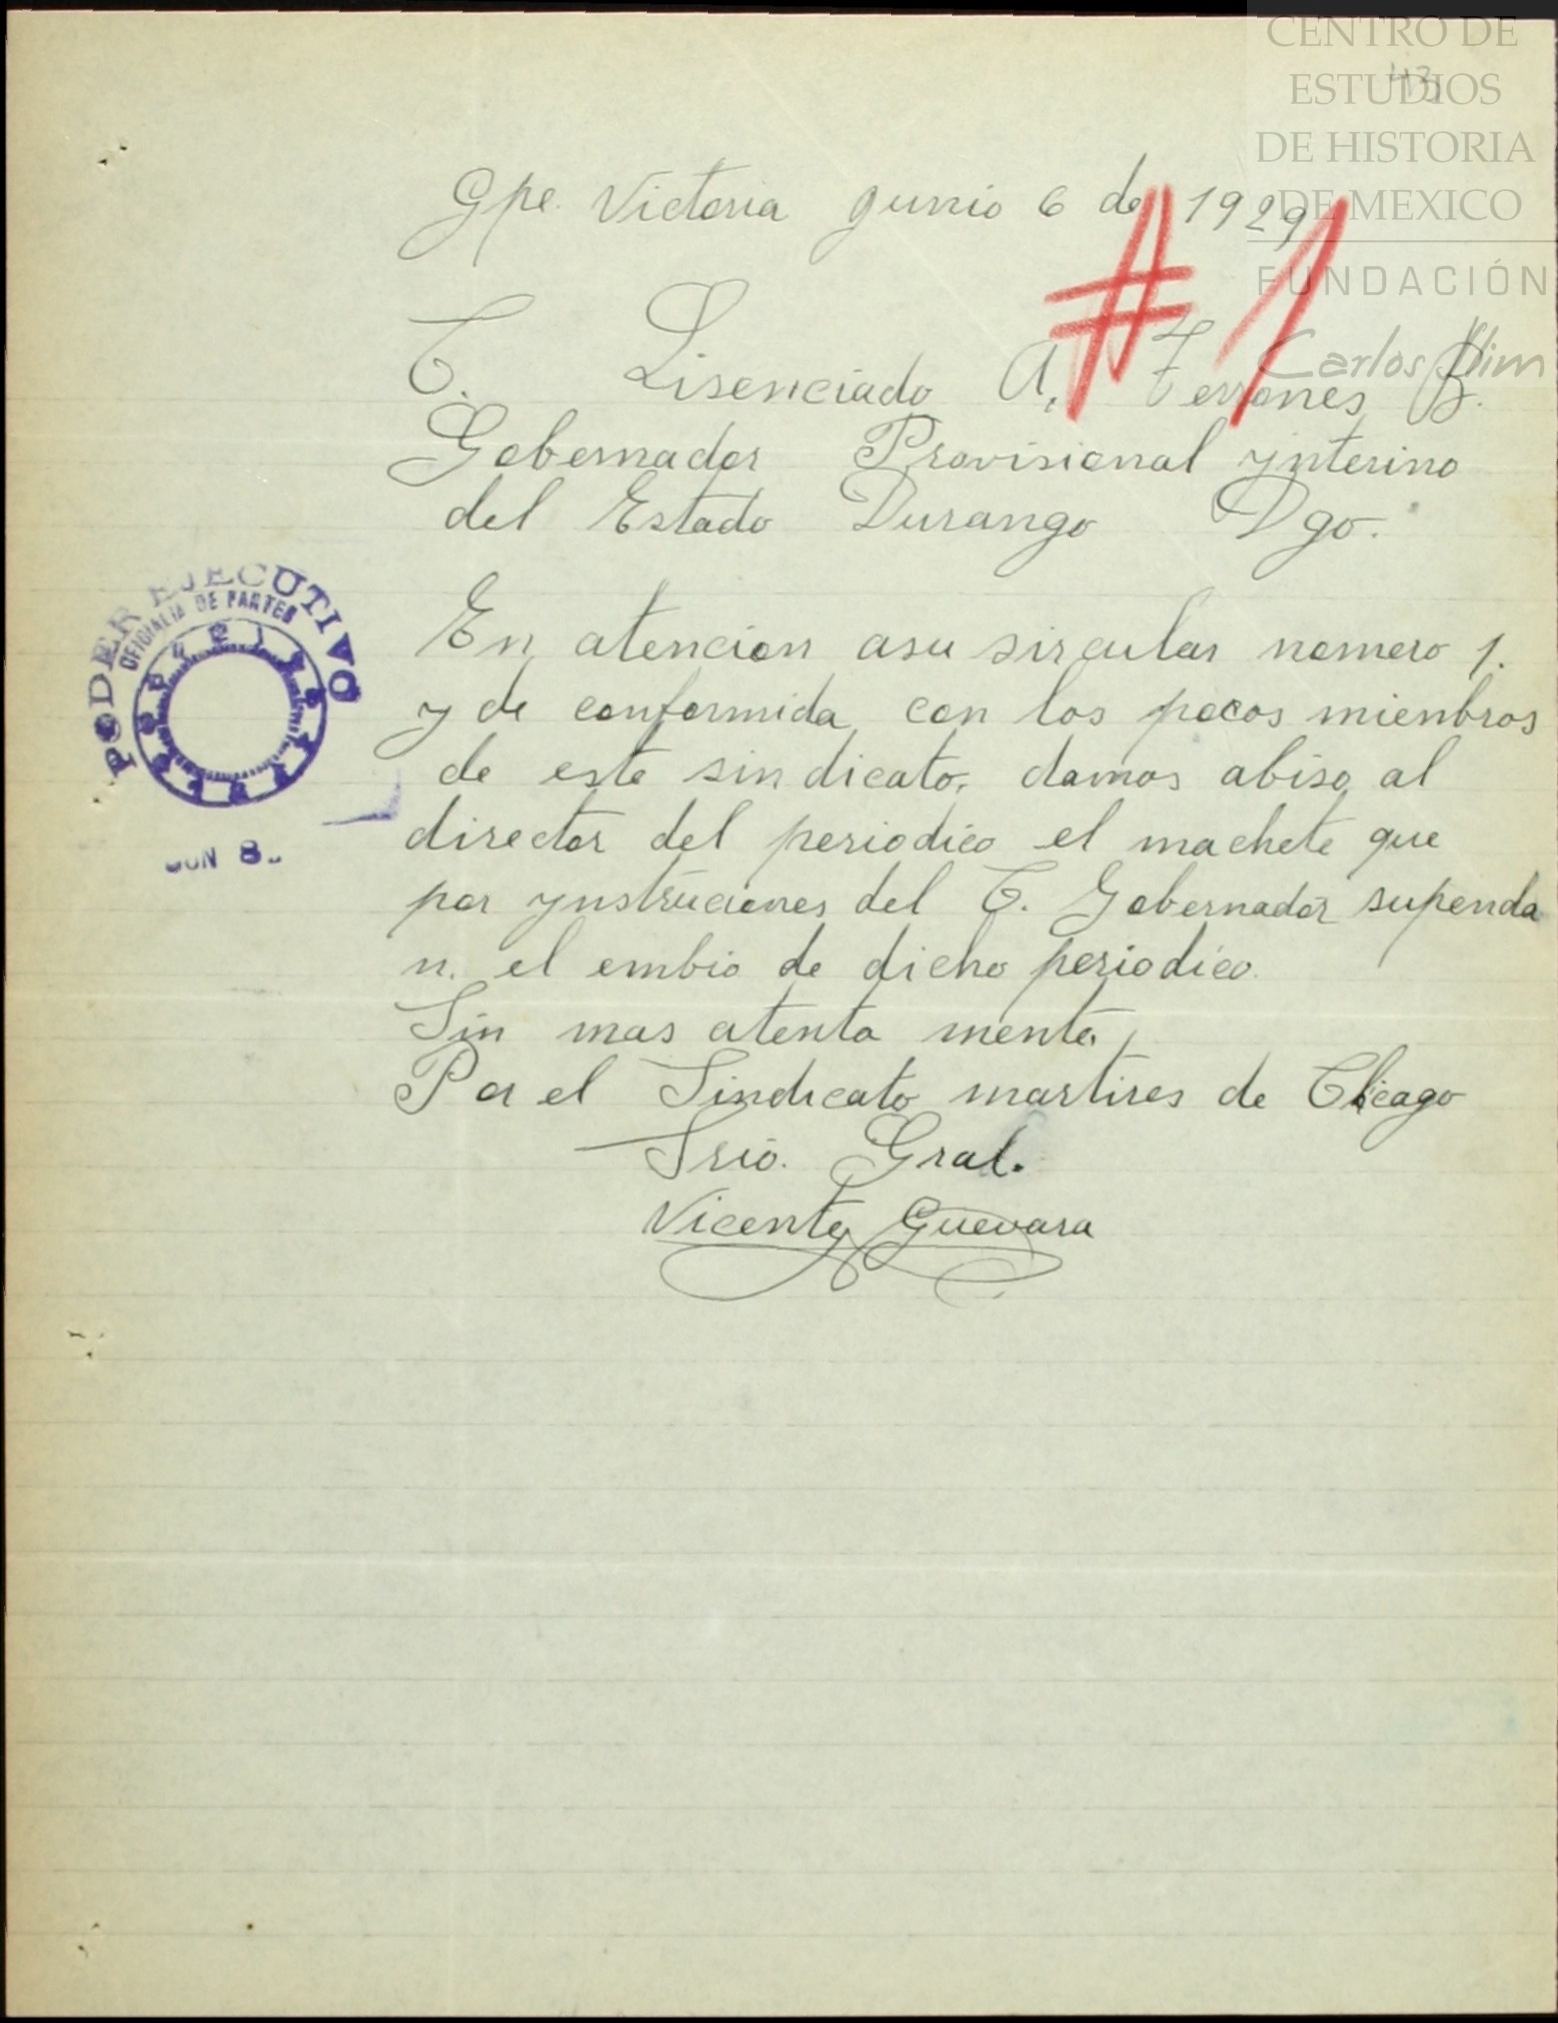 CENTRO DE
ESTUDIOS
DE HISTORIA
DE MEXICO
FUNDACIÓN
Carlos Slim
43
Gpe. Victoria Junio 6 de 1929
#1
C. Lisenciado A. Terrones B.
Gobernador Provisional ynterino
del Estado Durango Dgo.
PODER EJECUTIVO
OFICIALIA DE PARTES
JUN 8
En atencion asu sircular nomero 1.
y de conformida con los pocos mienbros
de este sindicato, damos abiso al
director del periodico el machete que
por ynstruciones del C. Gobernador supenda
n. el embio de dicho periodico.
Sin mas atenta mente,
Por el Sindicato martires de Chicago
Srio. Gral.
Vicente Guevara